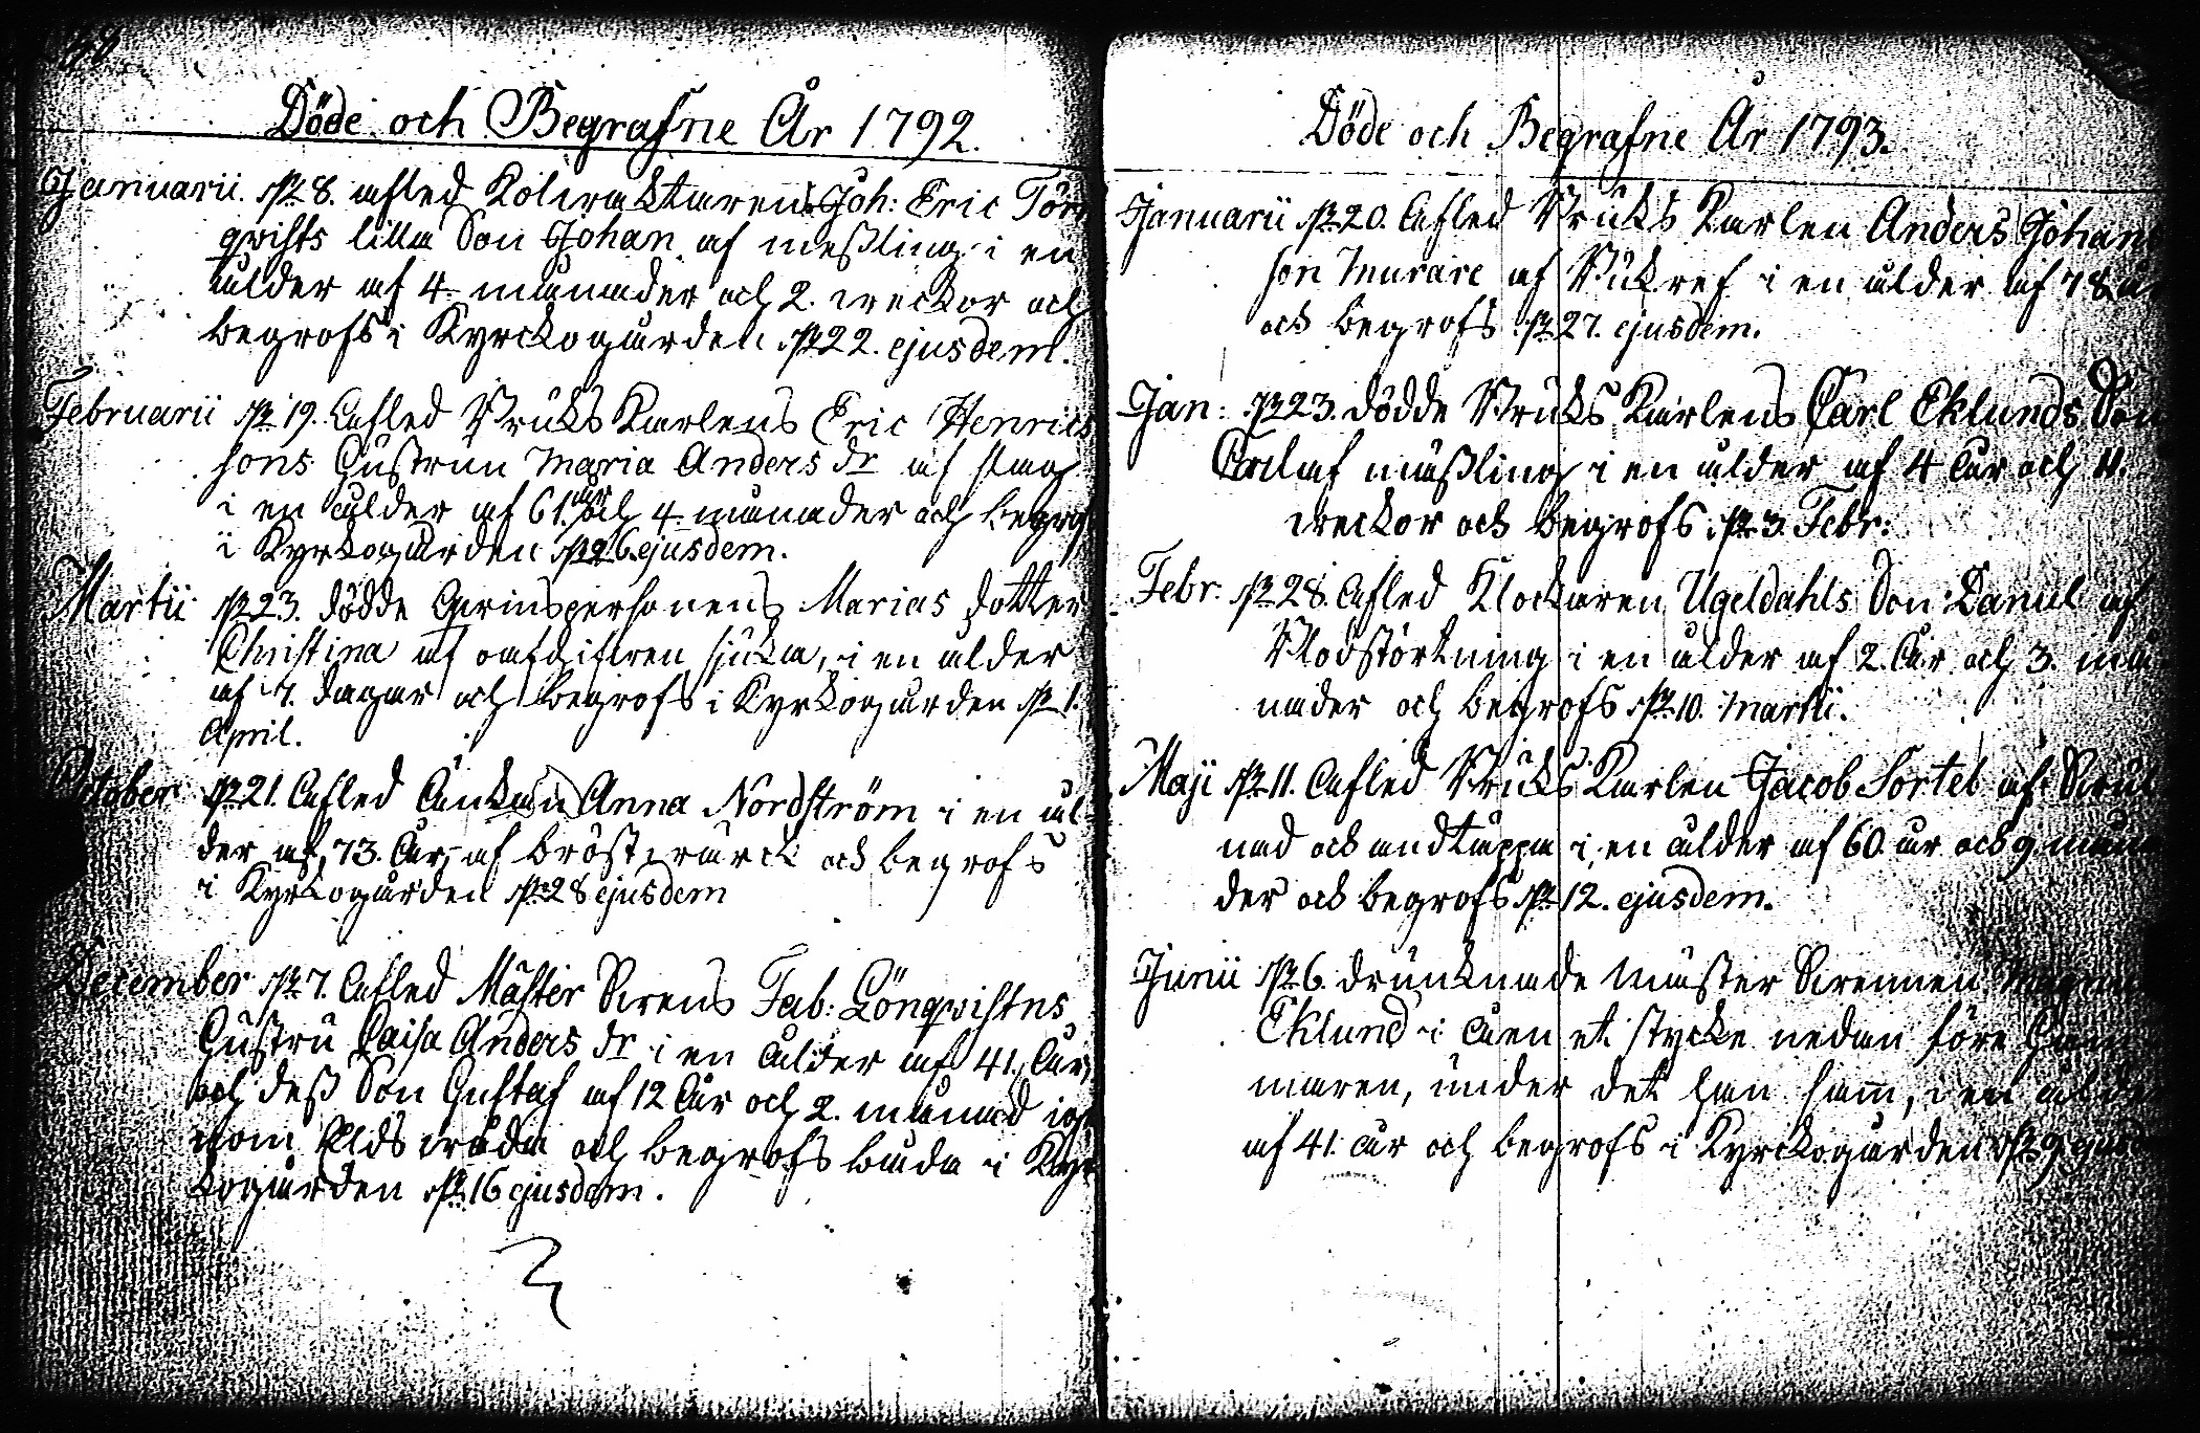 Döde och Begrafne År 1792.
Januarii. d. 8. afled Kolvracktaren Joh: Eric Törn
qvists lilla Son Johan af meßling i en
ålder af 4 månader och 2. veckor och
begrofs i Kyrckogården d. 22. ejusdem.
Februarii d. 19. Afled Bruks Karlens Eric Henrics
sons hustru Maria Anders dr af slag
i en ålder af 61. år och 4 månader och begrofs
i Kyrkogården d. 26. ejusdem.
Martii d. 23. dödde Qvinspersonens Marias dotter
Christina af sjuka, i en ålder
af 7. dagar och begrofs i Kyrkogården d. 1.
April.
October d. 21. Afled Änkan Anna Nordström i en ål
der af 73. År, af bröstvärck och begrofs
i Kyrkogården d. 28 ejusdem
December d. 7. Afled Mäster Svens Fab: Lönqvistns
Hustru Caisa Anders dr i en ålder af 41. År,
och deß Son Gustaf af 12 År och 2. månad ige
nom Elds våda och begrofs båda i Kyr
kogården d. 16 ejusdem.
Döde och Begrafne År 1793.
Januarii d. 20. Afled Bruks Karlen Anders Johan
son Murare af i en ålder af 78 år
och begrofs d. 27. ejusdem.
Jan: d. 23. dödde Bruks Karlens Carl Eklunds Son
Carl af mäßling i en ålder af 4 År och 11.
veckor och begrofs d. 3. Febr:
Febr. d. 28. Afled Klockaren Ugeldahls Son Daniel af
Blodstörtning i en ålder af 2. År och 3. må
nader och begrofs d. 10. Martii.
Maji d. 11. Afled Bruks Karlen Jacob Sortel af
nad och andtäppa i en ålder af 60 år och 9 måna
der och begrofs d. 12. ejusdem.
Junii d. 6. drunknade Mäster
Eklund i åen et stycke nedan före Ham
maren, under det han sam, i en ålder
af 41. år och begrofs i Kyrckogården d. 9. ejus